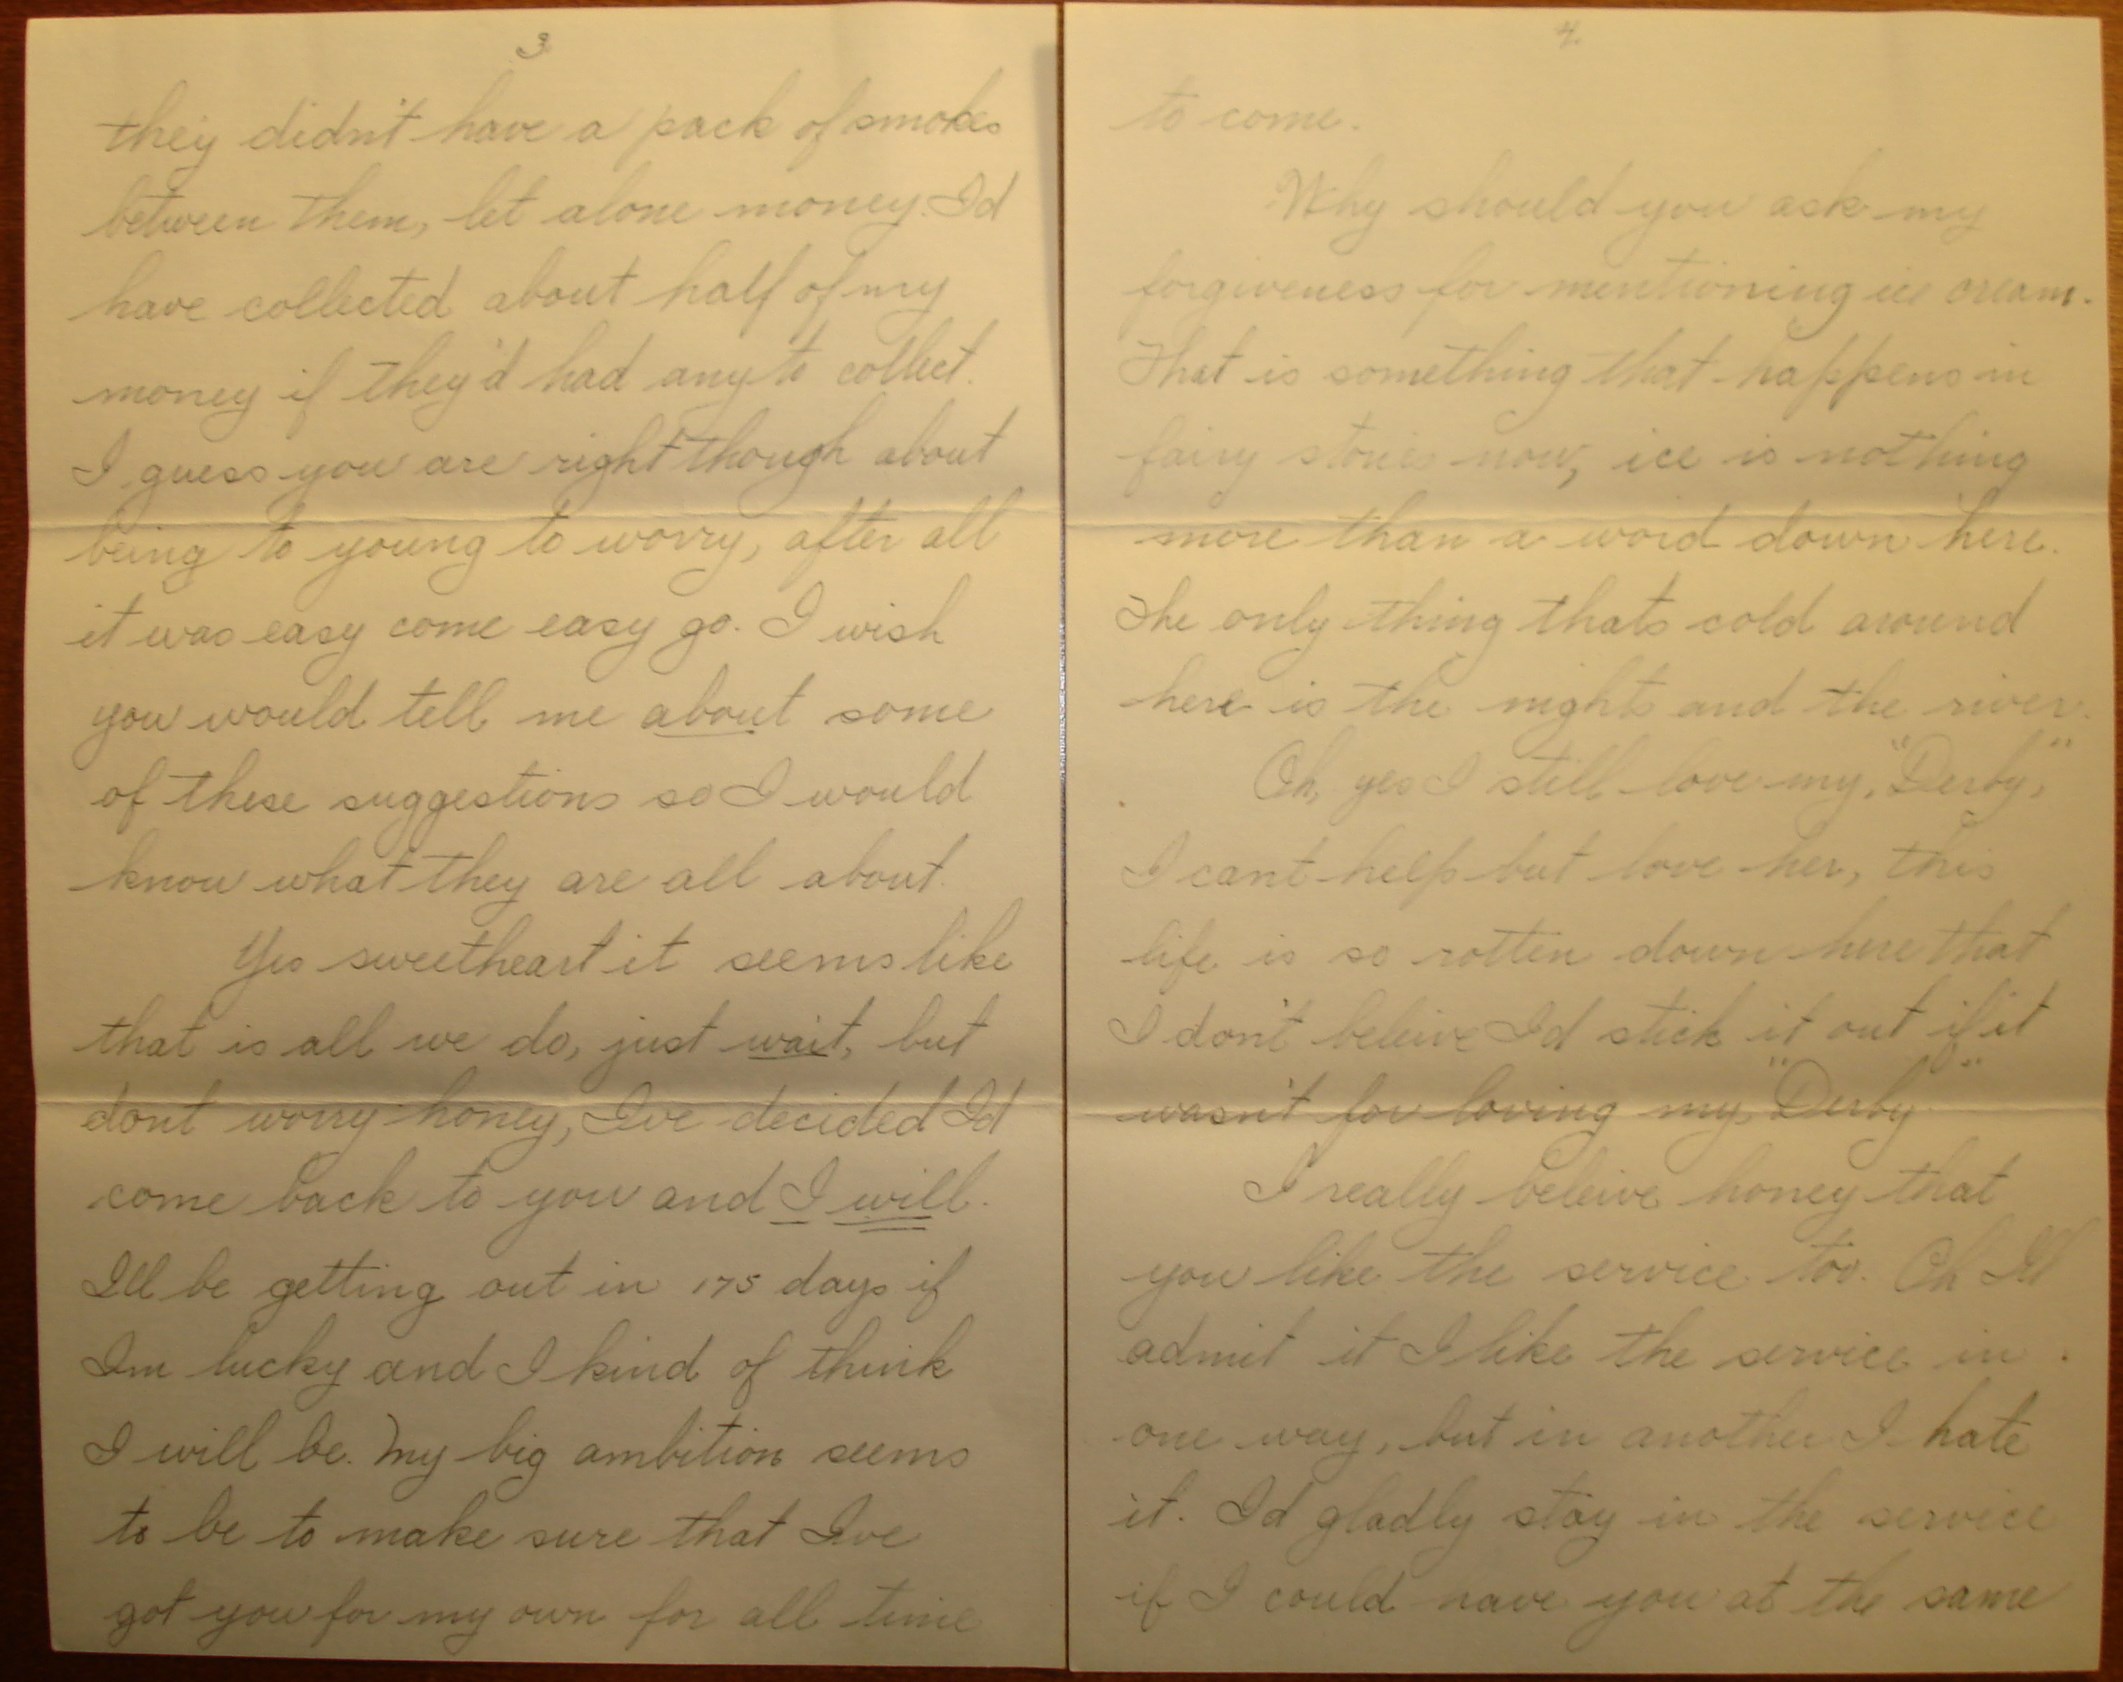 3
they didn't have a pack of smokes
between them, let alone money. I'd
have collected about half of my
money if they'd had any to collect.
I guess you are right though about
being to young to worry, after all
it was easy come easy go. I wish
you would tell me about some
of these suggestions so I would
know what they are all about.
Yes sweetheart it seems like
that is all we do, just wait, but
dont worry honey, Ive decided Id
come back to you and I will.
I'll be getting out in 175 days if
Im lucky and I kind of think
I will be. My big ambition seems
to be to make sure that Ive
got you for my own for all time
4.
to come.
Why should you ask my
forgiveness for mentioning ice cream.
That is something that happens in
fairy stories now, ice is nothing
more than a word down here.
The only thing thats cold around
here is the nights and the river.
Oh, yes I still love my, "Derby,"
I cant help but love her, this
life is so rotten down here that
I don't beleive I'd stick it out if it
wasn't for loving my, "Derby"
I really beleive honey that
you like the service too. Oh I'll
admit it I like the service in
one way, but in another I hate
it. I'd gladly stay in the service
if I could have you at the same